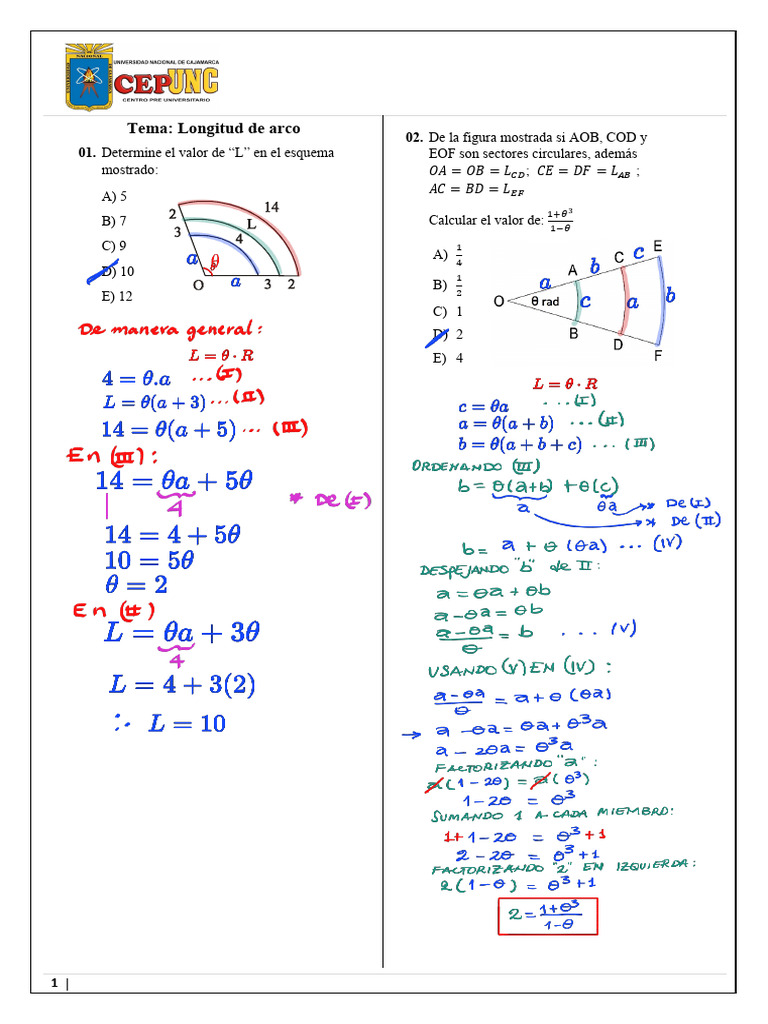 UNIVERSIDAD NACIONAL DE CAJAMARCA
CEPUNC
CENTRO PRE UNIVERSITARIO
Tema: Longitud de arco
01. Determine el valor de “L” en el esquema
mostrado:
A) 5
B) 7
C) 9
D) 10
E) 12
14
2
L
3
4
a
θ
O
a
3
2
De manera general:
L = θ · R
4 = θ.a ...(I)
L = θ(a + 3) ...(II)
14 = θ(a + 5) ... (III)
En (III):
14 = θa + 5θ
4
* De (I)
14 = 4 + 5θ
10 = 5θ
θ = 2
En (II)
L = θa + 3θ
4
L = 4 + 3(2)
∴ L = 10
02. De la figura mostrada si AOB, COD y
EOF son sectores circulares, además
OA = OB = L_CD ; CE = DF = L_AB ;
AC = BD = L_EF
Calcular el valor de: (1+θ³)/(1−θ)
A) 1/4
B) 1/2
C) 1
D) 2
E) 4
E
c
C
b
A
a
O
θ rad
c
a
b
B
D
F
L = θ · R
c = θa ...(I)
a = θ(a + b) ...(II)
b = θ(a + b + c) ...(III)
ORDENANDO (III)
b = θ(a+b) + θ(c)
a
θa
* De (I)
* De (II)
b = a + θ (θa) ... (IV)
DESPEJANDO "b" de II:
a = θa + θb
a − θa = θb
(a − θa)/θ = b ... (V)
USANDO (V) EN (IV):
(a − θa)/θ = a + θ (θa)
→ a − θa = θa + θ³a
a − 2θa = θ³a
FACTORIZANDO "a":
a(1 − 2θ) = a(θ³)
1 − 2θ = θ³
SUMANDO 1 A CADA MIEMBRO:
1 + 1 − 2θ = θ³ + 1
2 − 2θ = θ³ + 1
FACTORIZANDO "2" EN IZQUIERDA:
2(1 − θ) = θ³ + 1
2 = (1+θ³)/(1−θ)
1 |